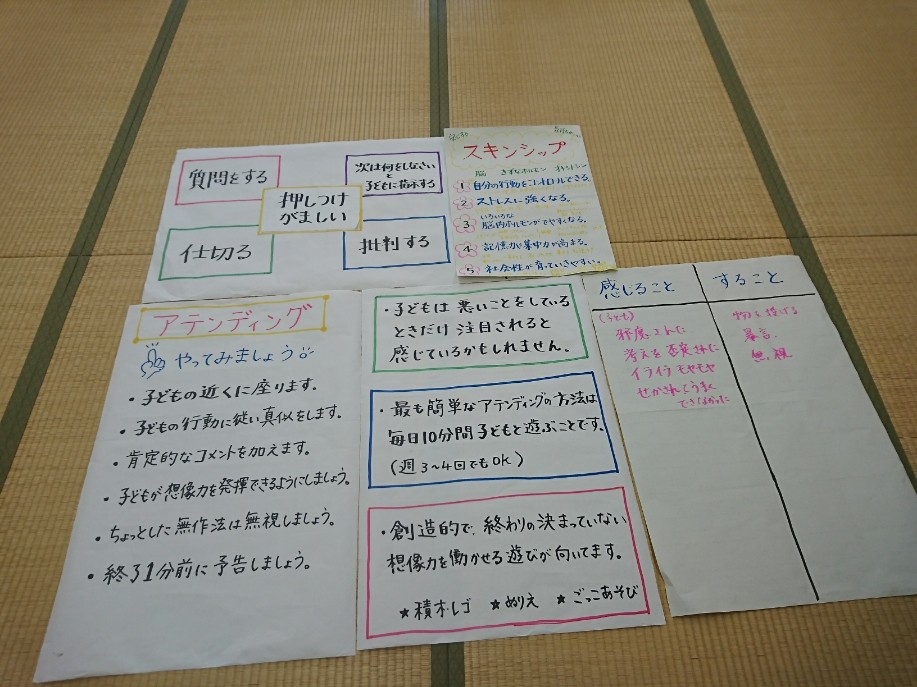 質問をする
次は何をしなさい
と
子どもに指示する
押しつけ
がましい
仕切る
批判する
スキンシップ
脳
① 自分の行動をコントロールできる。
② ストレスに強くなる。
いろいろな
③ 脳内ホルモンがでやすくなる。
④ 記憶力や集中力が高まる。
⑤ 社会性が育っていきやすい。
アテンディング
やってみましょう
・子どもの近くに座ります。
・子どもの行動に従い真似をします。
・肯定的なコメントを加えます。
・子どもが想像力を発揮できるようにしましょう。
・ちょっとした無作法は無視しましょう。
・終了1分前に予告しましょう。
・子どもは悪いことをしている
ときだけ注目されると
感じているかもしれません。
・最も簡単なアテンディングの方法は
毎日10分間子どもと遊ぶことです。
(週3〜4回でもOK)
・創造的で、終わりの決まっていない
想像力を働かせる遊びが向いてます。
★積木レゴ ★ぬりえ ★ごっこあそび
感じること
(子ども)
邪魔された
考えを否定された
イライラ モヤモヤ
せかされてうまく
できなかった
すること
物を投げる
暴言
無視